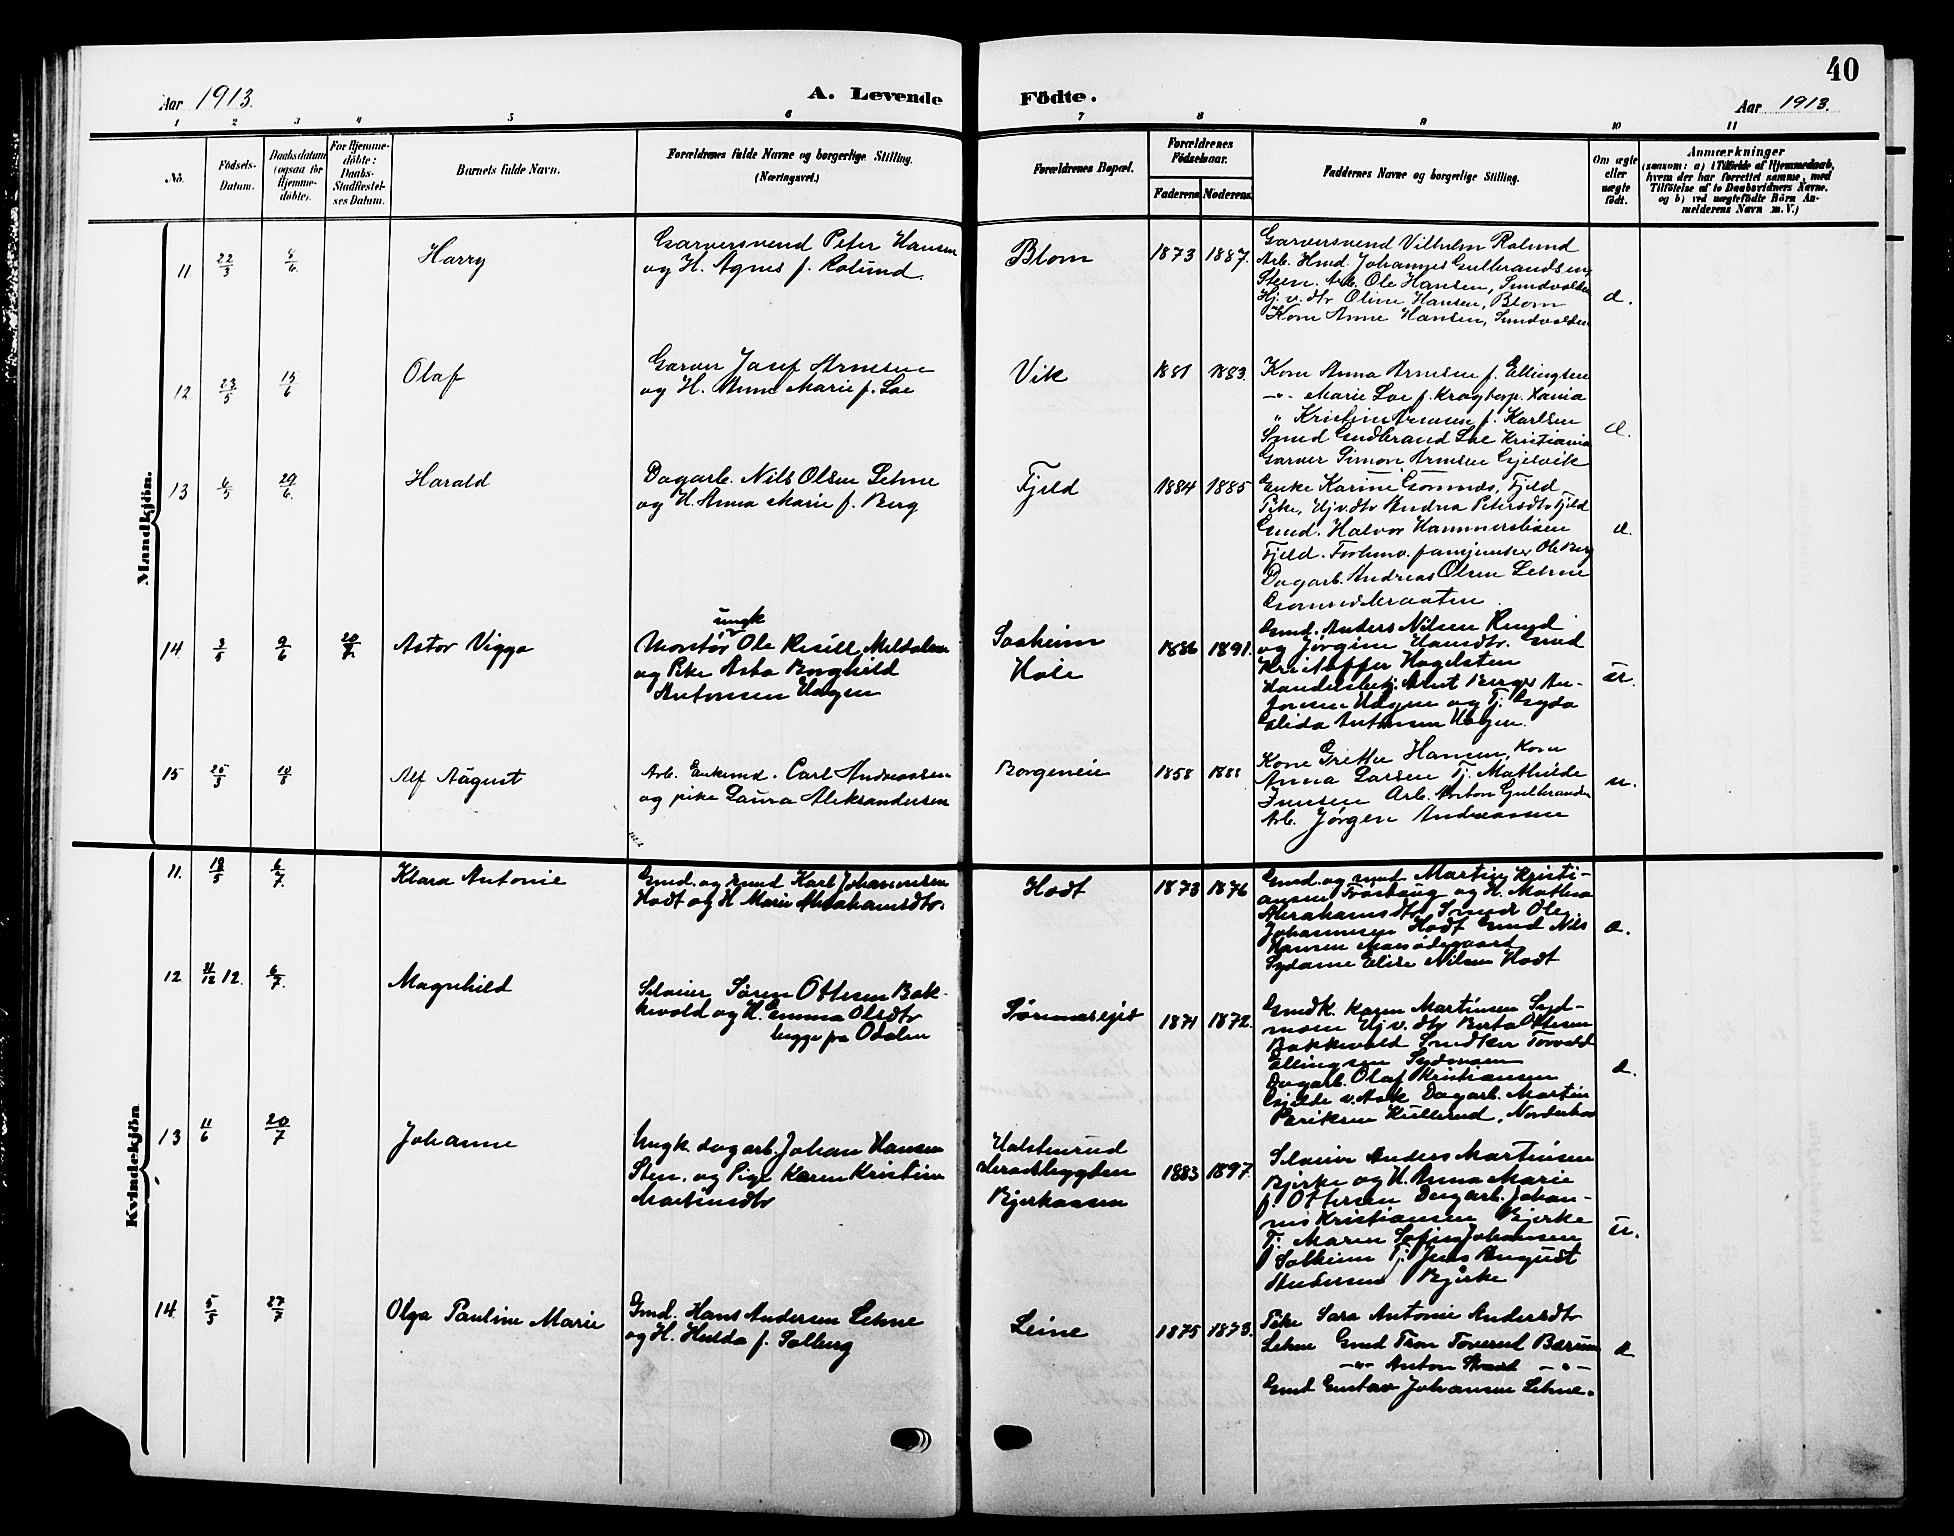 40
Aar 1913.
A. Levende Födte.
Aar 1913.
1 2 3 4 5 6 7 8 9 10 11
No.
Födsels-Datum.
Daabsdatum (ogsaa for Hjemme-döbte).
For Hjemme-döbte: Daabs-Stadfæstel-ses Datum.
Barnets fulde Navn.
Forældrenes fulde Navne og borgerlige Stilling.
(Næringsvei.)
Forældrenes Bopæl.
Forældrenes Födselsaar.
Faderens Moderens
Faddernes Navne og borgerlige Stilling.
Om ægte eller uægte födt.
Anmærkninger
(saasom: a) i Tilfælde af Hjemmedaab,
hvem der har forrettet samme, med
Tilföielse af to Daabsvidners Navne.
og b) ved uægtefödte Börn An-
melderens Navn m. V.)
Mandkjön.
11 22/3 Harry
Garversvend Peter Hansen
og H. Agnes f. Rolund.
Blom 1873 1887.
Garversvend Vilhelm Rolund
Arb. Hmd. Johannes Gulbrandsen,
Steen. Arb. Ole Hansen, Sundvolden
Hj. v. dtr Oline Hansen, Blom
Kone Anne Hansen, Sundvolden
12 23/5 15/6 Olaf
Garver Josef Arnesen
og H. Anna Marie f. Loe
Vik 1881 1883.
Kone Anna Arnesen f. Ellingsen
-"- Marie Loe f. Kragberg. Xania
" Kristine Arnesen f. Karlsen
Smed Gudbrand Loe Kristiania
Garver Simon Arnesen Gjelvik
13 6/5 29/6. Harald
Dagarb. Nils Olsen Lehne
og H. Anna Marie f. Berg
Fjeld 1884 1885
Enke Karine Fjeld
Pike, Hjv. dtr Andrea Petersdtr Fjeld
Gmd. Halvor Hammersbøen
Fjeld. Ole Berg
Dagarb. Andreas Olsen Lehne
14 3/5 9/6 Astor Viggo
ungk
Montør Ole Resell Meldalen
og Pike Asta Borghild
Antonsen Hagen
Saaheim
Hole
1886 1891.
Gmd. Anders Nilsen Rud
og Jørgine Hansdtr. Gmd
Kristoffer Hagelsten
Handelsbetj. Arnt Berger An-
tonsen Hagen og Tj. Gyda
Elida Antonsen Hagen.
15 25/3 Alf August
Arb. Enkemd. Carl Andreassen
og pike Laura Aleksandersen
Borgeneie 1858
Kone Grethe Hansen, Kone
Anna Larsen Tj. Mathilde
Jensen Arb. Morten Gulbrandsen
Arb. Jørgen Andreassen
u.
Kvindekjön
11. 18/5 6/7. Klara Antonie
Gmd. og smed Karl Johannesen
Hodt og H. Marie Abrahamsdtr.
Hodt 1873 1876
Gmd. og smed Martin Kristi-
ansen Frøshaug og H. Mathea
Abrahamsdtr Smed Ole
Johannesen Hodt Gmd Nils
Hansen
Sydame Elise Nilsen Hodt
12 31/12 12. 6/7. Magnhild
Sleier Søren Ottesen Bak-
kevold og H. Emma Olsdtr
begge fra Odalen
1871 1872.
Gmdk. Karen Martinsen Syd-
moen Hj v. dtr Berta Ottesen
Bakkevold Smedlær Torvald
Ellingsen Sydmoen
Dagarb. Olaf Kristiansen
Gjelde v. Ask Dagarb. Martin
Eriksen Kullerud, Norderhov
13 11/6 20/7 Johanne
Ungk. dagarb. Johan Hansen
Sten. og Pige Karen Kristine
Martinsdtr
Halstenrud
Aasbygden
Bjerkaasen
1883 1897.
Sleier Anders Martinsen
Bjerke og H. Anna Marie
f. Ottersen Dagarb. Johan-
nes Kristiansen Bjerke
Tj. Maren Sofie Johansen
Solheim Tj. Jens August
Andersen Bjerke
14. 5/5 27/7 Olga Pauline Marie
Gmd. Hans Andersen Lehne
og H. Hulda f. Solberg
Leine 1875 1873.
Pike Sara Antonie Andersdtr
Lehne Gmd Tron Toverud Bærum
-"- Anton -"-
Gmd Gustav Johansen Lehne.